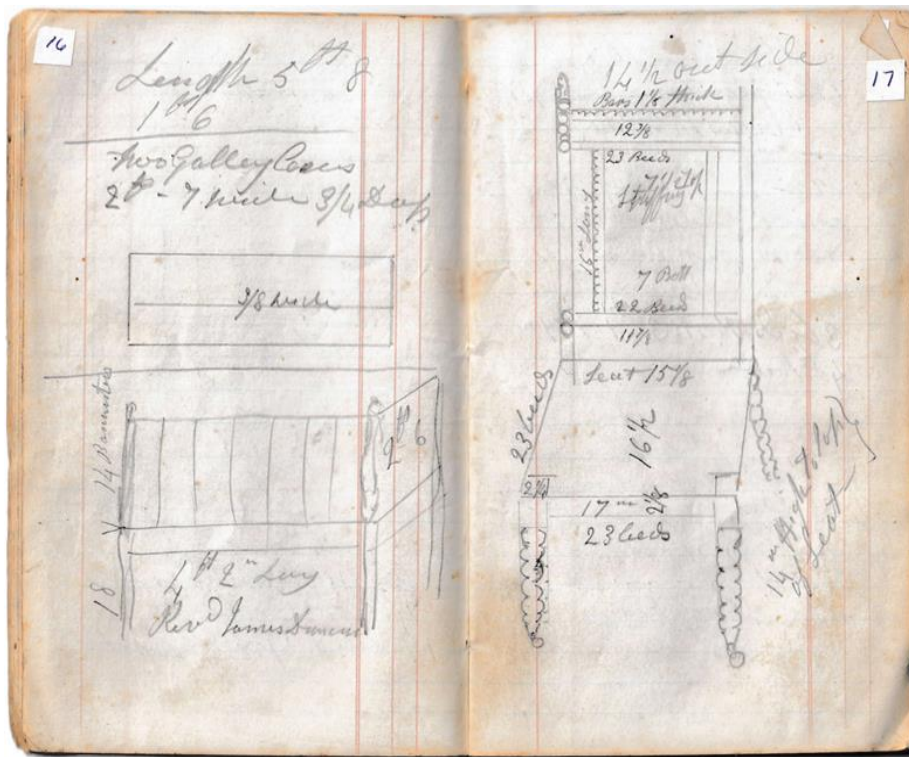 16
Length 5 ft 8
1 ft 6
two Galley Cases
2 ft - 7 wide 3/4 Deep
3/8 wide
14 Bannisters
2 ft 6
18
4 ft 2 in Long
Revd James Duncan
17
14 1/2 out side
Bars 1 1/8 thick
12 3/8
23 Beeds
7 1/2 top
Stuffing
15 in Long
7 Bott
22 Beed
11 7/8
Seat 15 1/8
23 beeds
16 1/2
2 1/2
17 in
2 1/8
23 beeds
14 in high to top
of Seat